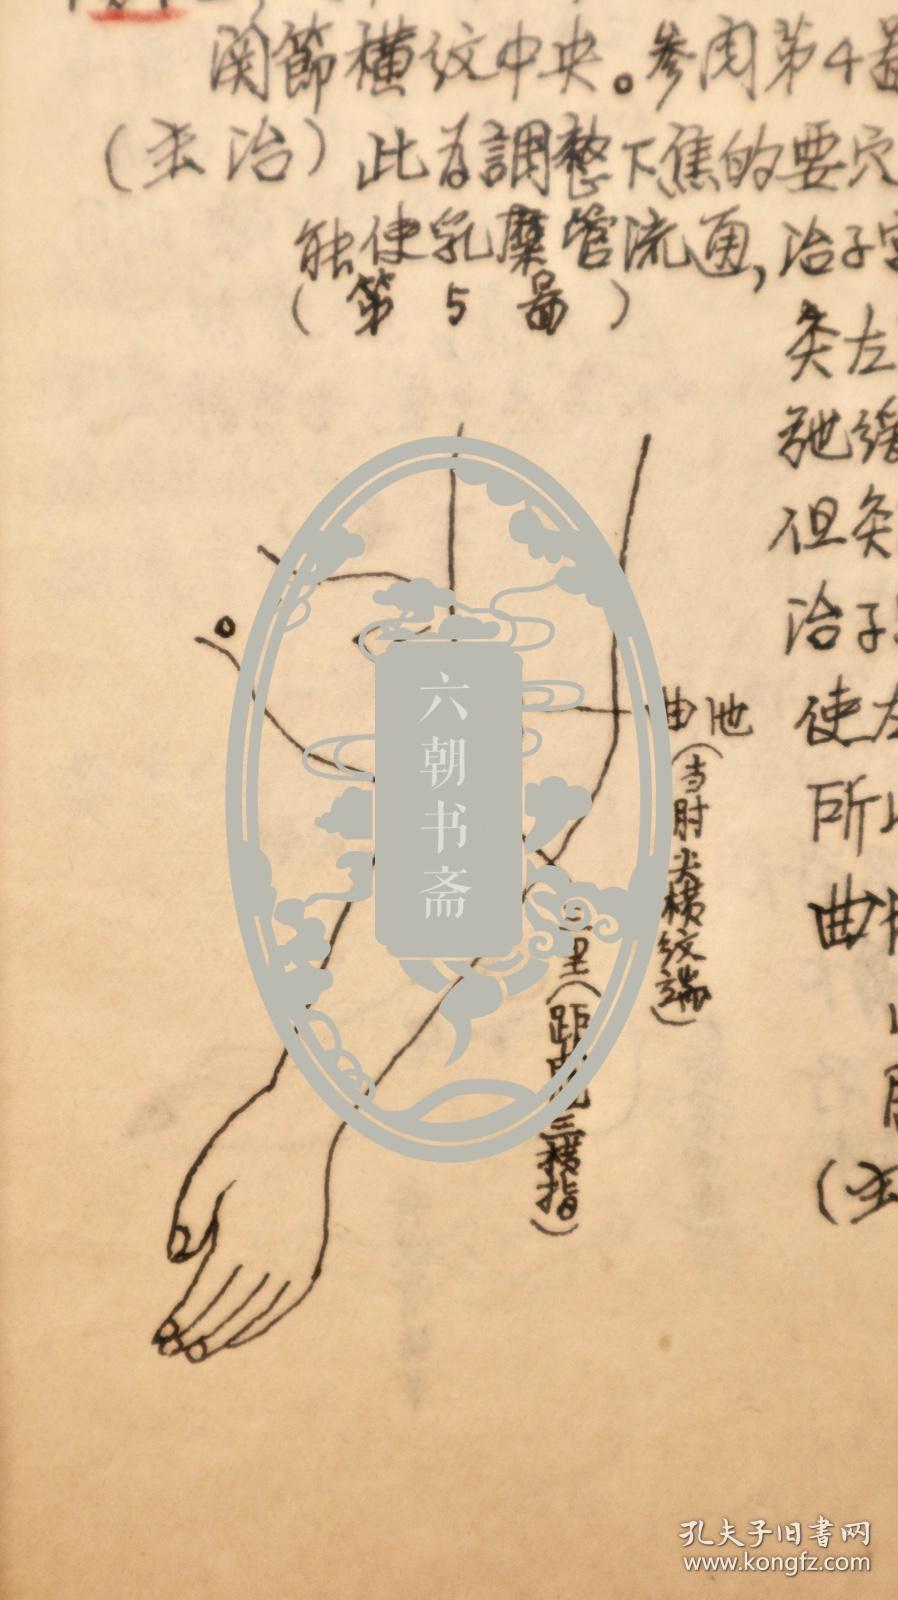 関節横纹中央。参閲第4啚
(主治)此為調整下焦的要穴
能使乳糜管流通,治子宮
(第5啚)
灸左
弛緩
但灸
治子
使左
所以
曲
(主
曲池
(当肘尖横纹端)
三里(距曲池三横指)
六朝书斋
孔夫子旧书网
www.kongfz.com